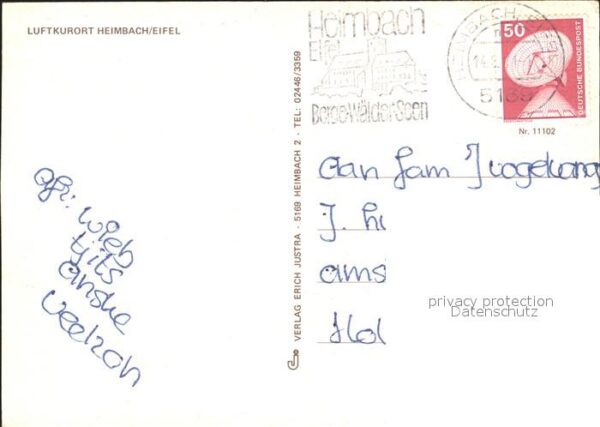 LUFTKURORT HEIMBACH/EIFEL
Heimbach
Eifel
Berge Wälder Seen
HEIMBACH, EIFEL
14.8.
5169
50
DEUTSCHE BUNDESPOST
Nr. 11102
VERLAG ERICH JUSTRA - 5169 HEIMBACH 2 - TEL: 02446/3359
aan fam
J. hi
ams
Hol
gr:
wieb
tjits
anske
privacy protection
Datenschutz